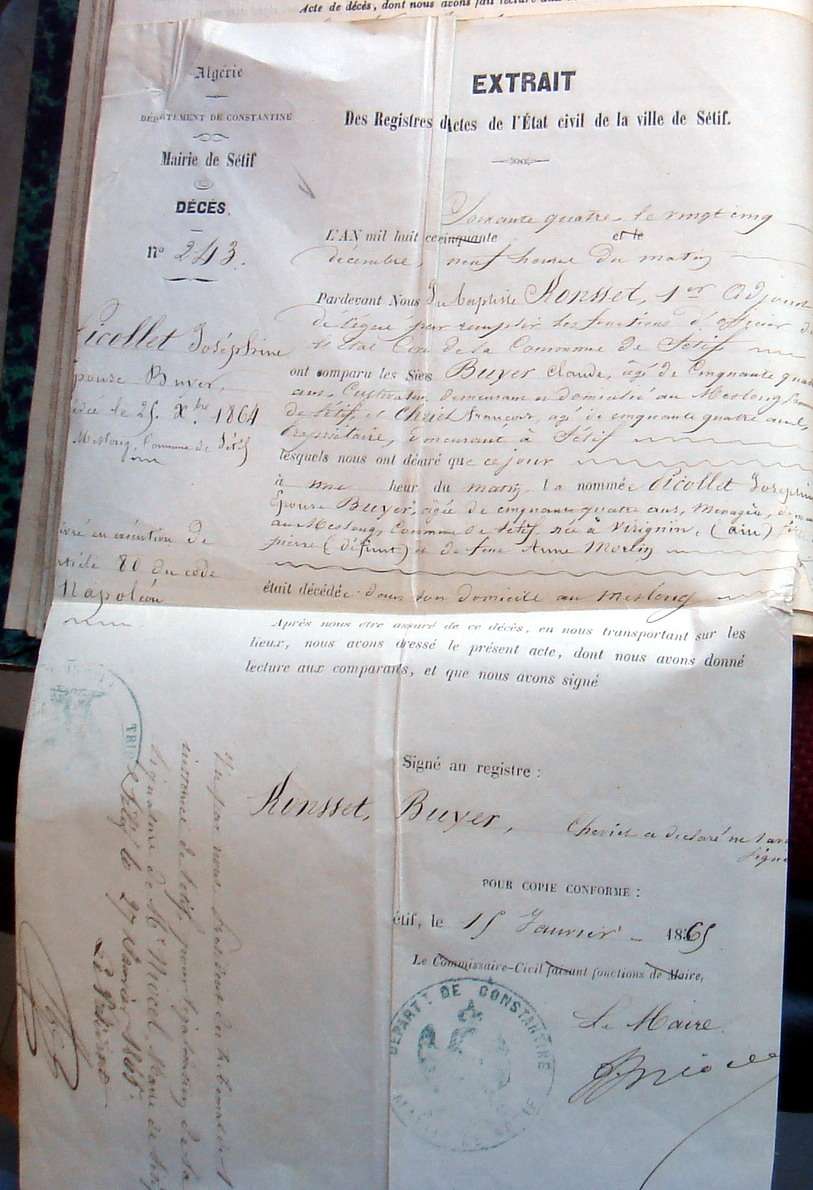 Acte de décès, dont nous avons fait lecture aux
Algérie
DÉPARTEMENT DE CONSTANTINE
Mairie de Sétif
DÉCÈS.
N° 243.
Picollet Joséphine
épouse Buyer,
le 25 Xbre 1864
Meslong Commune de Sétif
en exécution de
80 du code
Napoléon
EXTRAIT
Des Registres d'Actes de l'État civil de la ville de Sétif.
Soixante quatre le vingt cinq
L'AN mil huit cent cinquante et le
décembre, neuf heures du matin
Pardevant Nous Jn Baptiste Ronsset, 1er Adjoint
délégué pour remplir les fonctions d'officier de
l'Etat Civil de la Commune de Sétif
ont comparu les Sies Buyer Claude, âgé de Cinquante quatre
ans, Cultivateur demeurant et domicilié au Meslong Commune
de Sétif et François, agé de cinquante quatre ans,
Propriétaire, demeurant à Sétif
lesquels nous ont déclaré que ce jour
à une heur du matin. La nommée Picollet Joséphine
Epouse Buyer, agée de cinquante quatre ans, Menagère,
au Meslong, Commune de Sétif née à Virignin, (ain)
pierre (défunt) et de feue Anne Mortin
était décédée dans son domicile au meslong
Après nous être assuré de ce décès, en nous transportant sur les
lieux, nous avons dressé le présent acte, dont nous avons donné
lecture aux comparants, et que nous avons signé
Signé au registre :
Ronsset, Buyer, a déclaré ne
signer
POUR COPIE CONFORME :
Sétif, le 15 Janvier 1865
Le Commissaire-Civil faisant fonctions de Maire,
Le Maire
DÉPARTT DE CONSTANTINE
Vu par nous Président du tribunal de 1
instance de Sétif, pour légalisation de la
signature de Mr Maire de Sétif
Sétif le 27 Janvier 1865
Le Président
TRIB